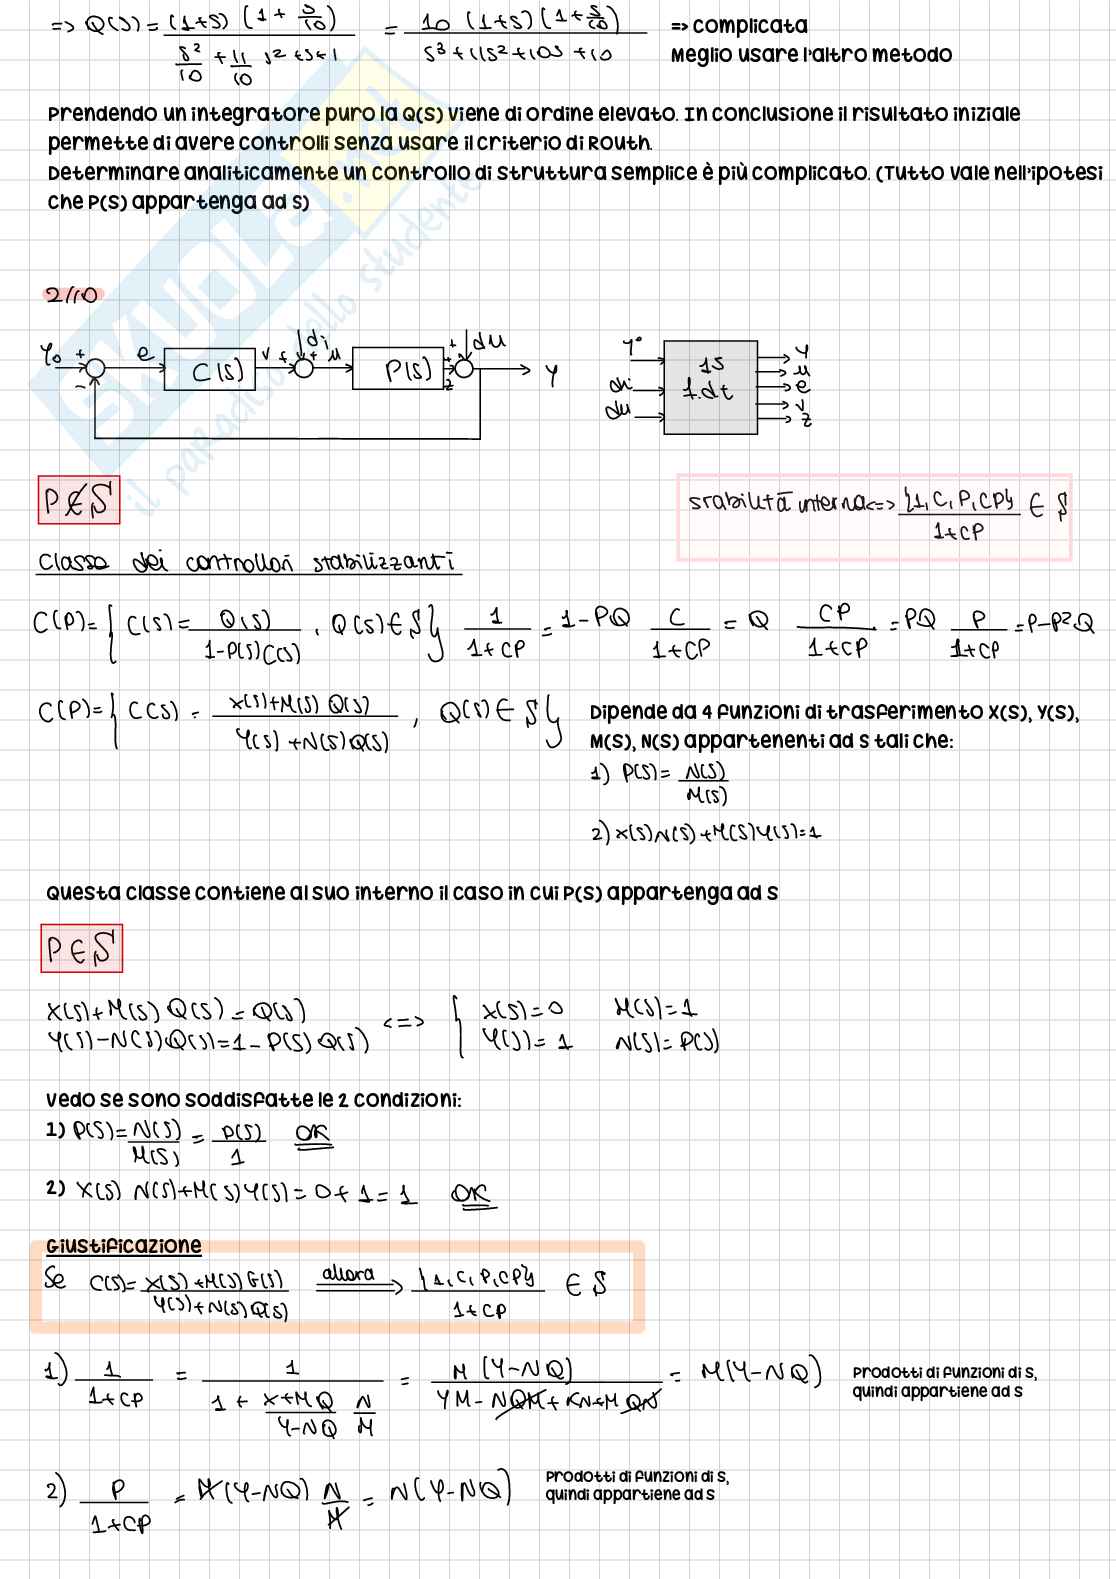 => Q(s) = (1+s) (1 + s/10) / (s³/10 + 11/10 s² + s + 1) = 10 (1+s) (1 + s/10) / (s³ + 11s² + 10s + 10) => complicata
Meglio usare l'altro metodo
Prendendo un integratore puro la Q(S) viene di ordine elevato. In conclusione il risultato iniziale
permette di avere controlli senza usare il criterio di Routh.
Determinare analiticamente un controllo di struttura semplice è più complicato. (Tutto vale nell'ipotesi
che P(S) appartenga ad S)
2/10
Y₀ + - e C(S) v + di + u P(S) + z + du y
Y° di du 15 f.dt y u e v z
P∉S
stabilità interna <=> {1, C, P, CP} / 1+CP ∈ S
Classe dei controllori stabilizzanti
C(P) = { C(S) = Q(S) / 1-P(S)C(S) , Q(S) ∈ S } 1/1+CP = 1-PQ C/1+CP = Q CP/1+CP = PQ P/1+CP = P-P²Q
C(P) = { C(S) = X(S)+M(S) Q(S) / Y(S)+N(S)Q(S) , Q(S) ∈ S }
Dipende da 4 funzioni di trasferimento X(S), Y(S),
M(S), N(S) appartenenti ad S tali che:
1) P(S) = N(S) / M(S)
2) X(S)N(S)+M(S)Y(S)=1
Questa classe contiene al suo interno il caso in cui P(S) appartenga ad S
P∈S
X(S)+M(S) Q(S) = Q(S) X(S)=0 M(S)=1
Y(S)-N(S)Q(S)=1-P(S) Q(S) <=> { Y(S)=1 N(S)=P(S)
Vedo se sono soddisfatte le 2 condizioni:
1) P(S) = N(S)/M(S) = P(S)/1 OK
2) X(S) N(S)+M(S)Y(S) = 0+1 = 1 OK
Giustificazione
Se C(S) = X(S)+M(S)Q(S) / Y(S)+N(S)Q(S) allora {1, C, P, CP} / 1+CP ∈ S
1) 1/1+CP = 1 / 1 + X+MQ/Y-NQ N/M = M(Y-NQ) / YM-NQM+XN+MQN = M(Y-NQ) Prodotti di funzioni di S,
quindi appartiene ad S
2) P/1+CP = M(Y-NQ) N/M = N(Y-NQ) Prodotti di funzioni di S,
quindi appartiene ad S
SKUOLA.net
il paradiso dello studente